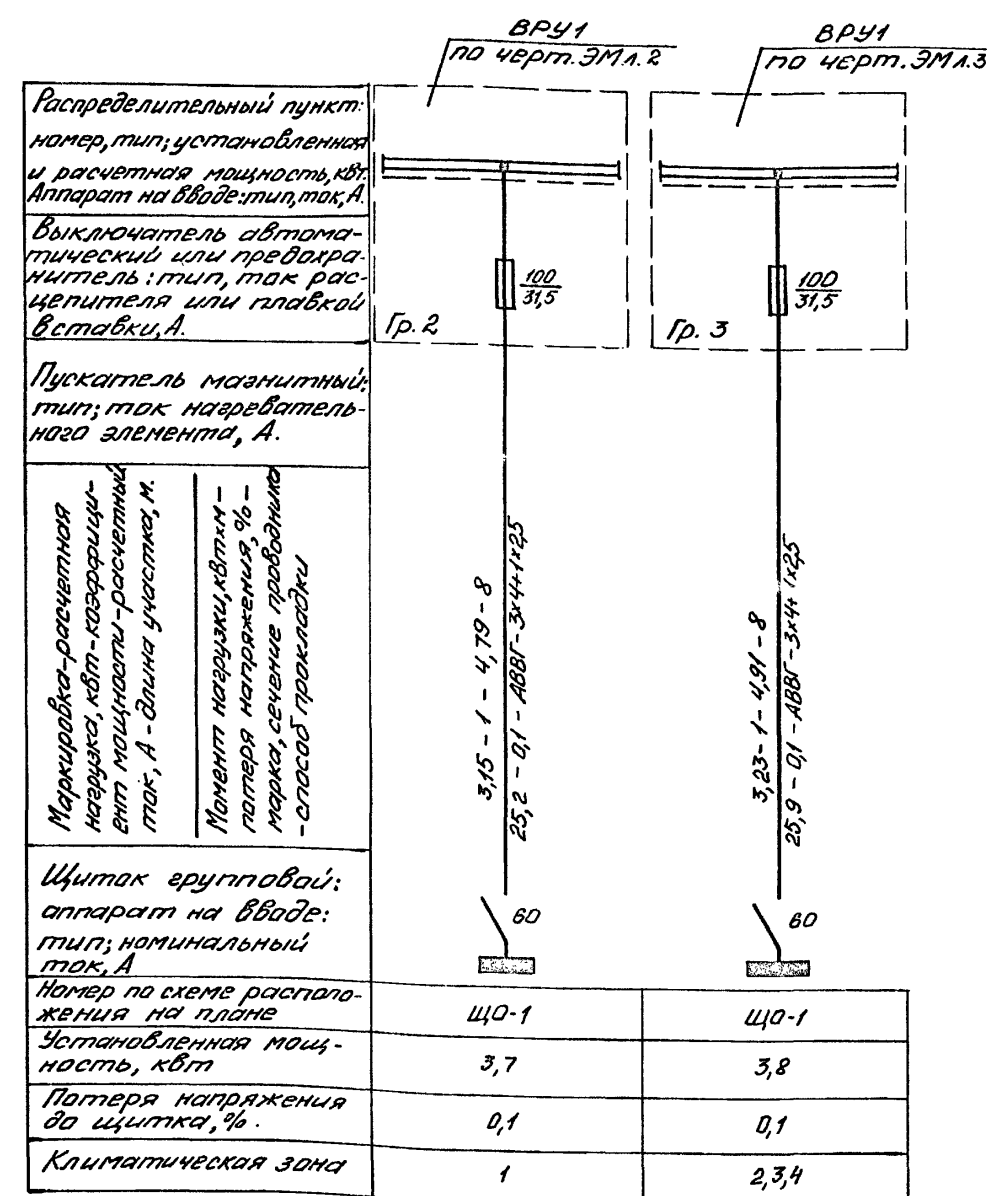 ВРУ1
по черт. ЭМ л. 2
ВРУ1
по черт. ЭМ л. 3
Распределительный пункт:
номер, тип; установленная
и расчетная мощность, квт.
Аппарат на вводе: тип, ток, А.
Выключатель автома-
тический или предохра-
нитель: тип, ток рас-
цепителя или плавкой
вставки, А.
100
31,5
Гр. 2
100
31,5
Гр. 3
Пускатель магнитный:
тип; ток нагреватель-
ного элемента, А.
Маркировка-расчетная
нагрузка, квт-коэффици-
ент мощности-расчетный
ток, А-длина участка, м.
Момент нагрузки, квт×м-
потеря напряжения, %-
марка, сечение проводника
-способ прокладки
3,15 - 1 - 4,79 - 8
25,2 - 0,1 - АВВГ-3х4+1х2,5
3,23 - 1 - 4,91 - 8
25,9 - 0,1 - АВВГ-3х4+1х2,5
Щиток групповой:
аппарат на вводе:
тип; номинальный
ток, А
60
60
Номер по схеме располо-
жения на плане
ЩО-1
ЩО-1
Установленная мощ-
ность, квт
3,7
3,8
Потеря напряжения
до щитка, %.
0,1
0,1
Климатическая зона
1
2,3,4